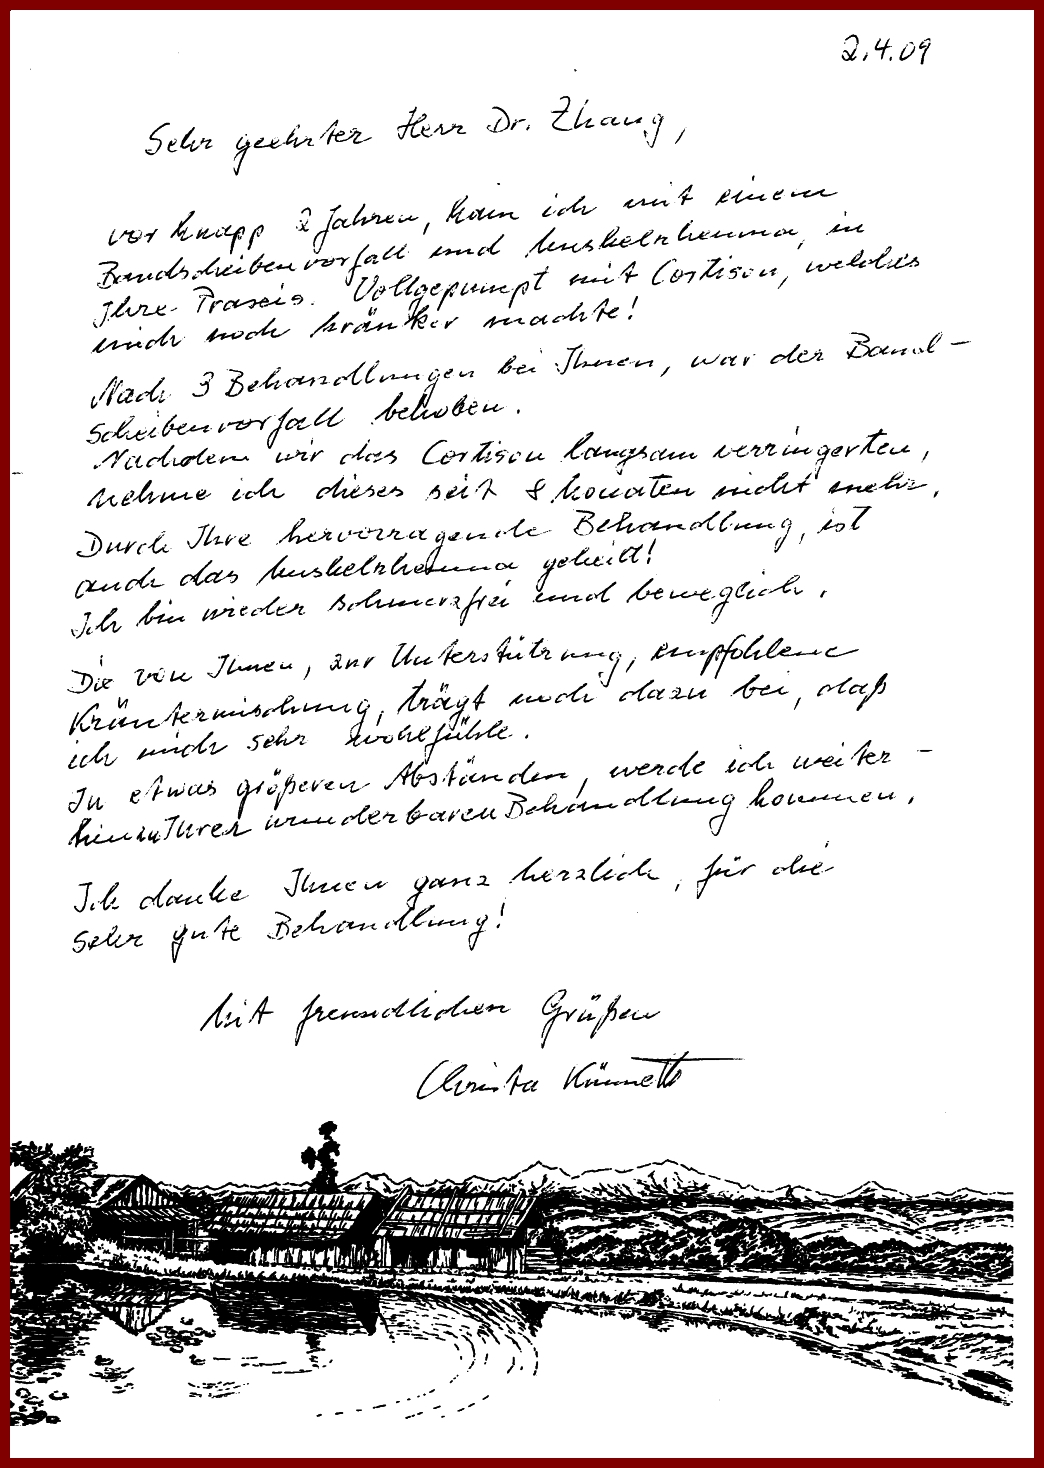 2.4.09
Sehr geehrter Herr Dr. Zhang,
vor knapp 2 Jahren, kam ich mit einem
Bandscheibenvorfall und Muskelrheuma, in
Ihre Praxis. Vollgepumpt mit Cortison, welches
mich noch kränker machte!
Nach 3 Behandlungen bei Ihnen, war der Band-
scheibenvorfall behoben.
Nachdem wir das Cortison langsam verringerten,
nehme ich dieses seit 8 Monaten nicht mehr.
Durch Ihre hervorragende Behandlung, ist
auch das Muskelrheuma geheilt!
Ich bin wieder schmerzfrei und beweglich.
Die von Ihnen, zur Unterstützung, empfohlene
Kräutermischung, trägt noch dazu bei, daß
ich mich sehr wohlfühle.
In etwas größeren Abständen, werde ich weiter-
hin zu Ihrer wunderbaren Behandlung kommen.
Ich danke Ihnen ganz herzlich, für die
sehr gute Behandlung!
Mit freundlichen Grüßen
Christa